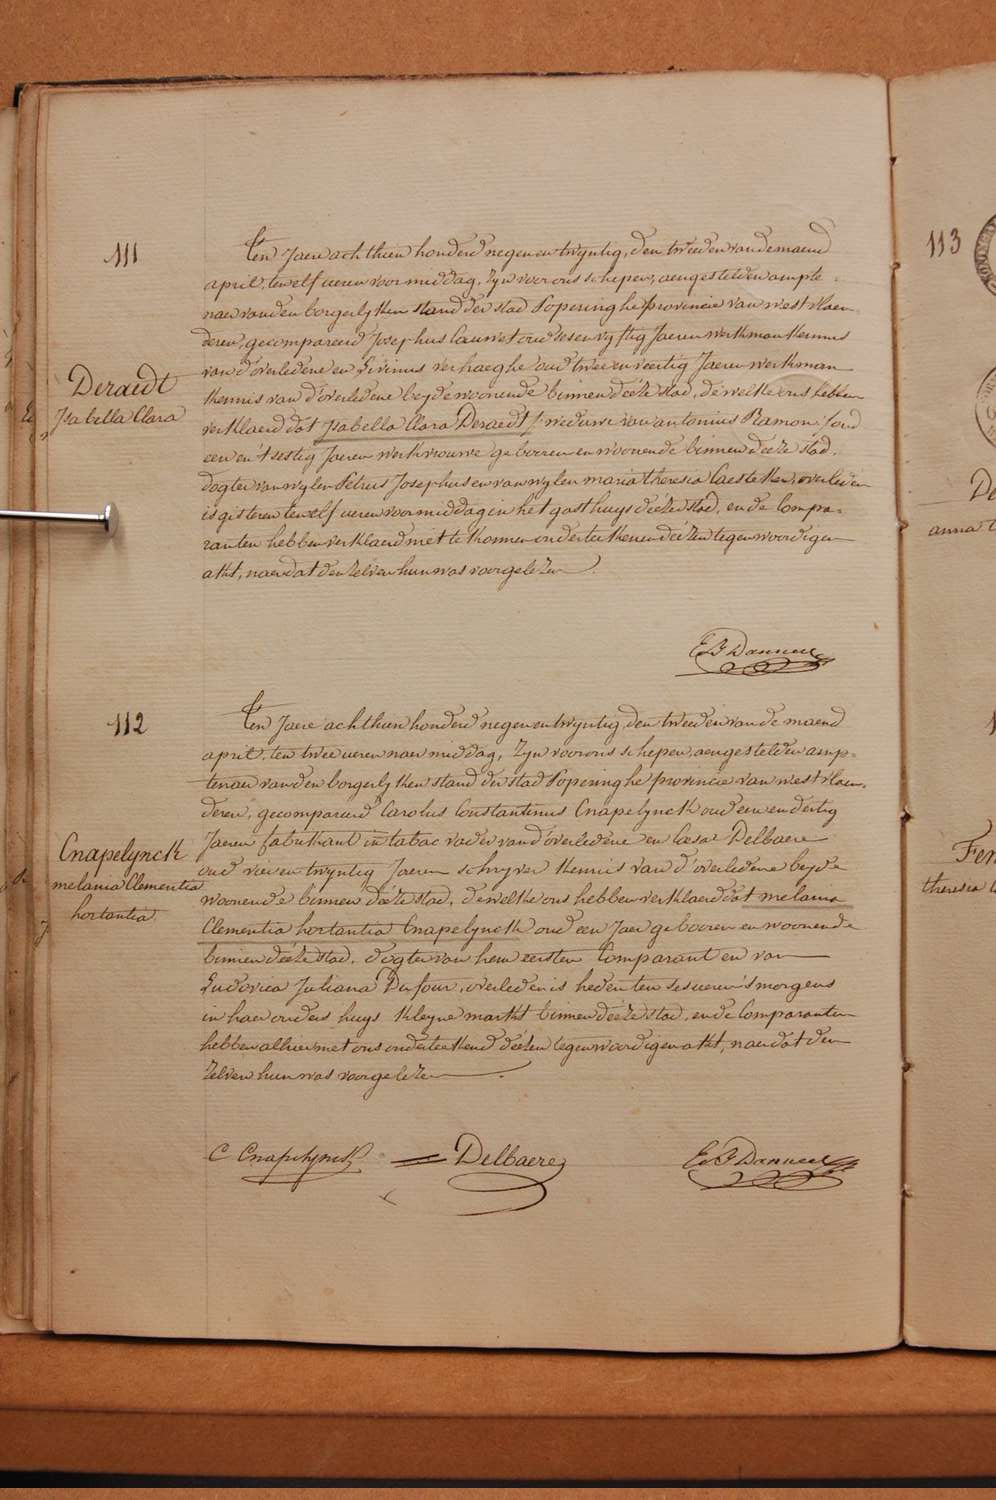 111
Deraedt
Isabella Clara
Ten Jaere achthien honderd negen en twyntig, den tweeden van de maend
april, ten elf ueren voormiddag, zyn voor ons schepen, aengestelden ampte-
naer van den borgerlyken stand der stad Poperinghe provincie van westvlaen-
deren, gecompareerd Josephus Cauwet oud ses en vyftig Jaeren werkman kennis
van d'overledene en Livinus verhaeghe oud twee en veertig Jaeren werkman
kennis van d'overledene beyde woonende binnen déeze stad, dewelke ons hebben
verklaerd dat Isabella Clara Deraedt weduwe van antonius Ramon, oud
een en t'sestig Jaeren werkvrouwe gebooren en woonende binnen deeze stad,
dogter van wylen Petrus Josephus en van wylen maria theresia Caesteker, overleden
is gisteren ten elf ueren voormiddag in het gasthuys déézer stad, en de Compa-
ranten hebben verklaerd niet te konnen onderteekenen déézen tegenwoordigen
akt, naer dat den zelven hun was voorgelezen.
E B Danneel
112
Cnapelynck
melania Clementia
hortantia
Ten Jaere achthien honderd negen en twyntig, den tweeden van de maend
april, ten twee ueren naermiddag, zyn voor ons schepen, aengestelden amp-
tenaer van den borgerlyken stand der stad Poperinghe provincie van westvlaen-
deren, gecompareerd Carolus Constantinus Cnapelynck oud een en dertig
Jaeren fabrikant in tabac vader van d'overledene en Cæsar Delbaere
oud vier en twyntig Jaeren schryver kennis van d'overledene beyde
woonende binnen déeze stad, dewelke ons hebben verklaerd dat melania
Clementia hortantia Cnapelynck oud een Jaer gebooren en woonende
binnen déeze stad, dogter van hem eersten Comparant en van
Ludovica Juliana Dufour, overleden is heden ten ses ueren 's morgens
in haer ouders huys kleyne markt binnen déeze stad, en de Comparanten
hebben alhier met ons onderteekend déézen tegenwoordigen akt, naer dat den
zelven hun was voorgelezen.
C Cnapelynck Delbaere E B Danneel
113
De
anna
Fer
theresia